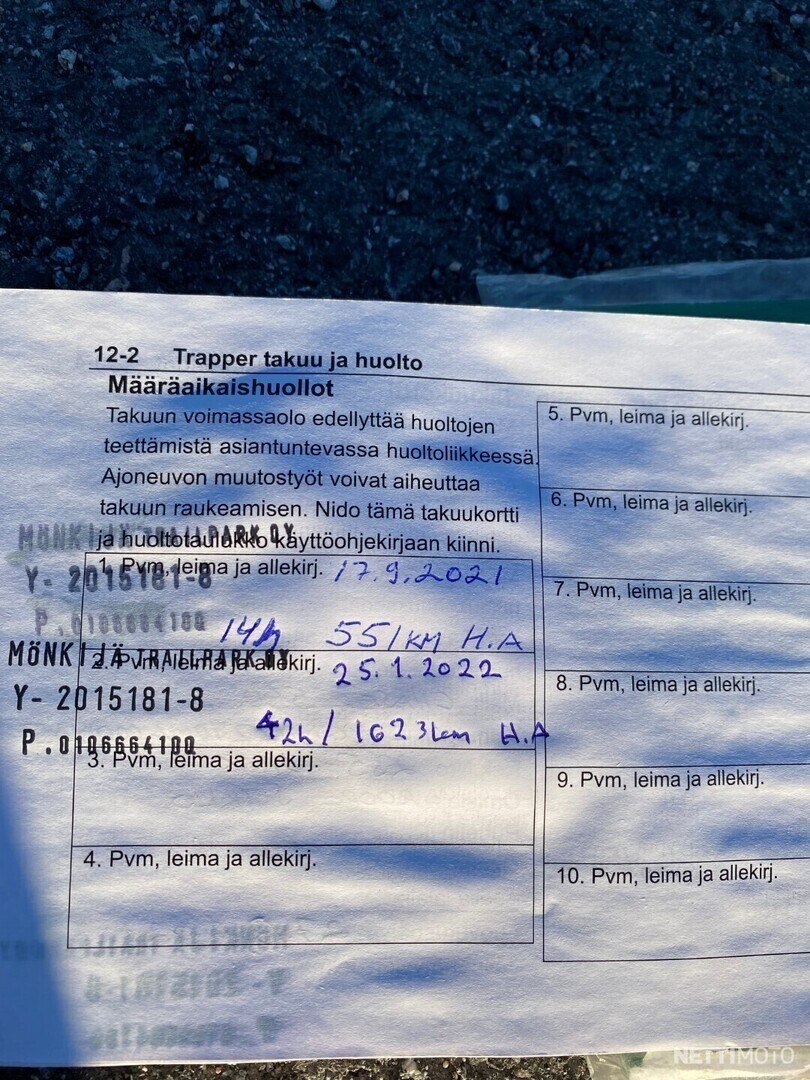 12-2 Trapper takuu ja huolto
Määräaikaishuollot
Takuun voimassaolo edellyttää huoltojen
teettämistä asiantuntevassa huoltoliikkeessä.
Ajoneuvon muutostyöt voivat aiheuttaa
takuun raukeamisen. Nido tämä takuukortti
ja huoltotaulukko käyttöohjekirjaan kiinni.
MÖNKIJÄ TRAILPARK OY
Y- 2015181-8
P.0106664100
1. Pvm, leima ja allekirj. 17.9.2021
14h 551km H.A
MÖNKIJÄ TRAILPARK OY
Y- 2015181-8
P.0106664100
2. Pvm, leima ja allekirj. 25.1.2022
42h/ 1623km H.A
3. Pvm, leima ja allekirj.
4. Pvm, leima ja allekirj.
5. Pvm, leima ja allekirj.
6. Pvm, leima ja allekirj.
7. Pvm, leima ja allekirj.
8. Pvm, leima ja allekirj.
9. Pvm, leima ja allekirj.
10. Pvm, leima ja allekirj.
NETTIMOTO